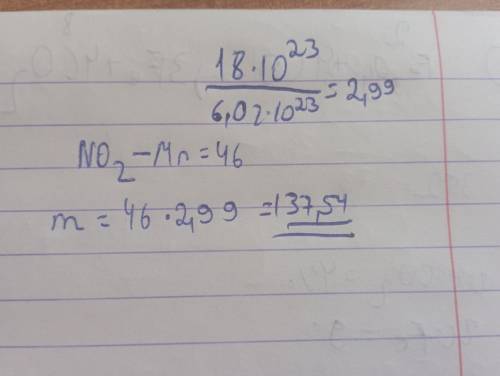 18·10²³
6,02·10²³ = 2,99
NO₂ – Mr = 46
m = 46·2,99 = 137,54